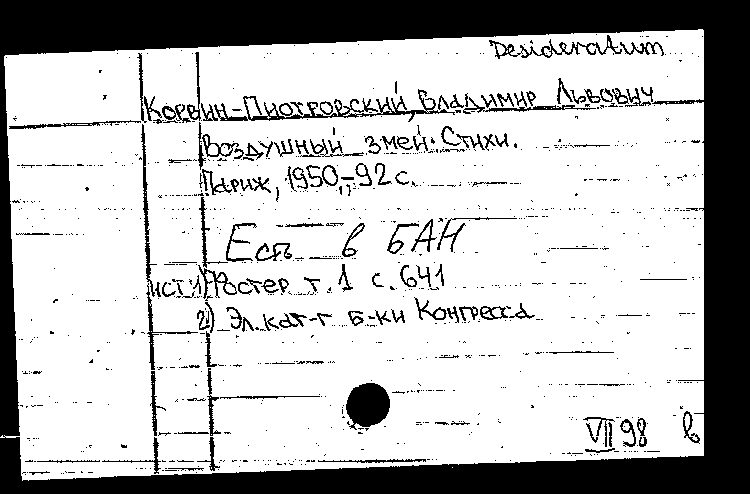 Desideratum
Корвин-Пиотровский, Владимир Львович
Воздушный змей. Стихи.
Париж, 1950,-92 с.
Есть в БАН
ист 1) Фостер т. 1 с. 641
2) Эл. кат-г б-ки Конгресса
VII 98 в